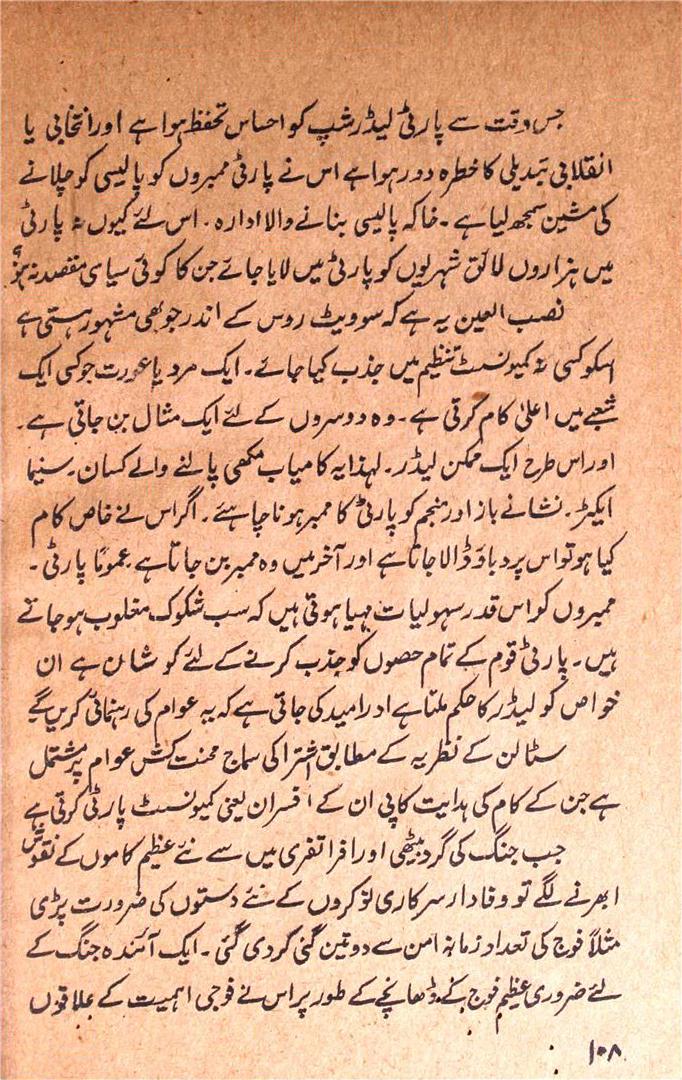 جس وقت سے پارٹی لیڈر شپ کو احساس تحفظ ہوا ہے اور انتخابی یا
انقلابی تبدیلی کا خطرہ دور ہوا ہے اس نے پارٹی ممبروں کو پالیسی کو چلانے
کی مشین سمجھ لیا ہے ۔ خاکہ پالیسی بنانے والا ادارہ ۔ اس لئے کیوں نہ پارٹی
میں ہزاروں لائق شہریوں کو پارٹی میں لایا جائے جن کا کوئی سیاسی مقصد نہ ہو؟
نصب العین یہ ہے کہ سوویٹ روس کے اندر جو بھی مشہور ہستی ہے
اسکو کسی نہ کمیونسٹ تنظیم میں جذب کیا جائے ۔ ایک مرد یا عورت جو کسی ایک
شعبے میں اعلیٰ کام کرتی ہے ۔ وہ دوسروں کے لئے ایک مثال بن جاتی ہے ۔
اور اس طرح ایک ممکن لیڈر ۔ لہذا یہ کامیاب مکھی پالنے والے کسان ۔ سنیما
ایکٹر ۔ نشانے باز اور منجم کو پارٹی کا ممبر ہونا چاہئے ۔ اگر اس نے خاص کام
کیا ہو تو اس پر دباؤ ڈالا جاتا ہے اور آخر میں وہ ممبر بن جاتا ہے عموماً پارٹی ۔
ممبروں کو اس قدر سہولیات مہیا ہوتی ہیں کہ سب شکوک مغلوب ہو جاتے
ہیں ۔ پارٹی قوم کے تمام حصوں کو جذب کرنے کے لئے کوشاں ہے ان
خواص کو لیڈر کا حکم ملتا ہے اور امید کی جاتی ہے کہ یہ عوام کی رہنمائی کریں گے
سٹالن کے نظریہ کے مطابق اشتراکی سماج محنت کش عوام پر مشتمل
ہے جن کے کام کی ہدایت کاپی ان کے افسران یعنی کمیونسٹ پارٹی کرتی ہے
جب جنگ کی گرد بیٹھی اور افراتفری میں سے نئے عظیم کاموں کے نقوش
ابھرنے لگے تو وفادار سرکاری نوکروں کے نئے دستوں کی ضرورت پڑی
مثلاً فوج کی تعداد زمانہ امن سے دو تین گنی کر دی گئی ۔ ایک آئندہ جنگ کے
لئے ضروری عظیم فوج کے ڈھانچے کے طور پر اس نے فوجی اہمیت کے علاقوں
۱۰۸